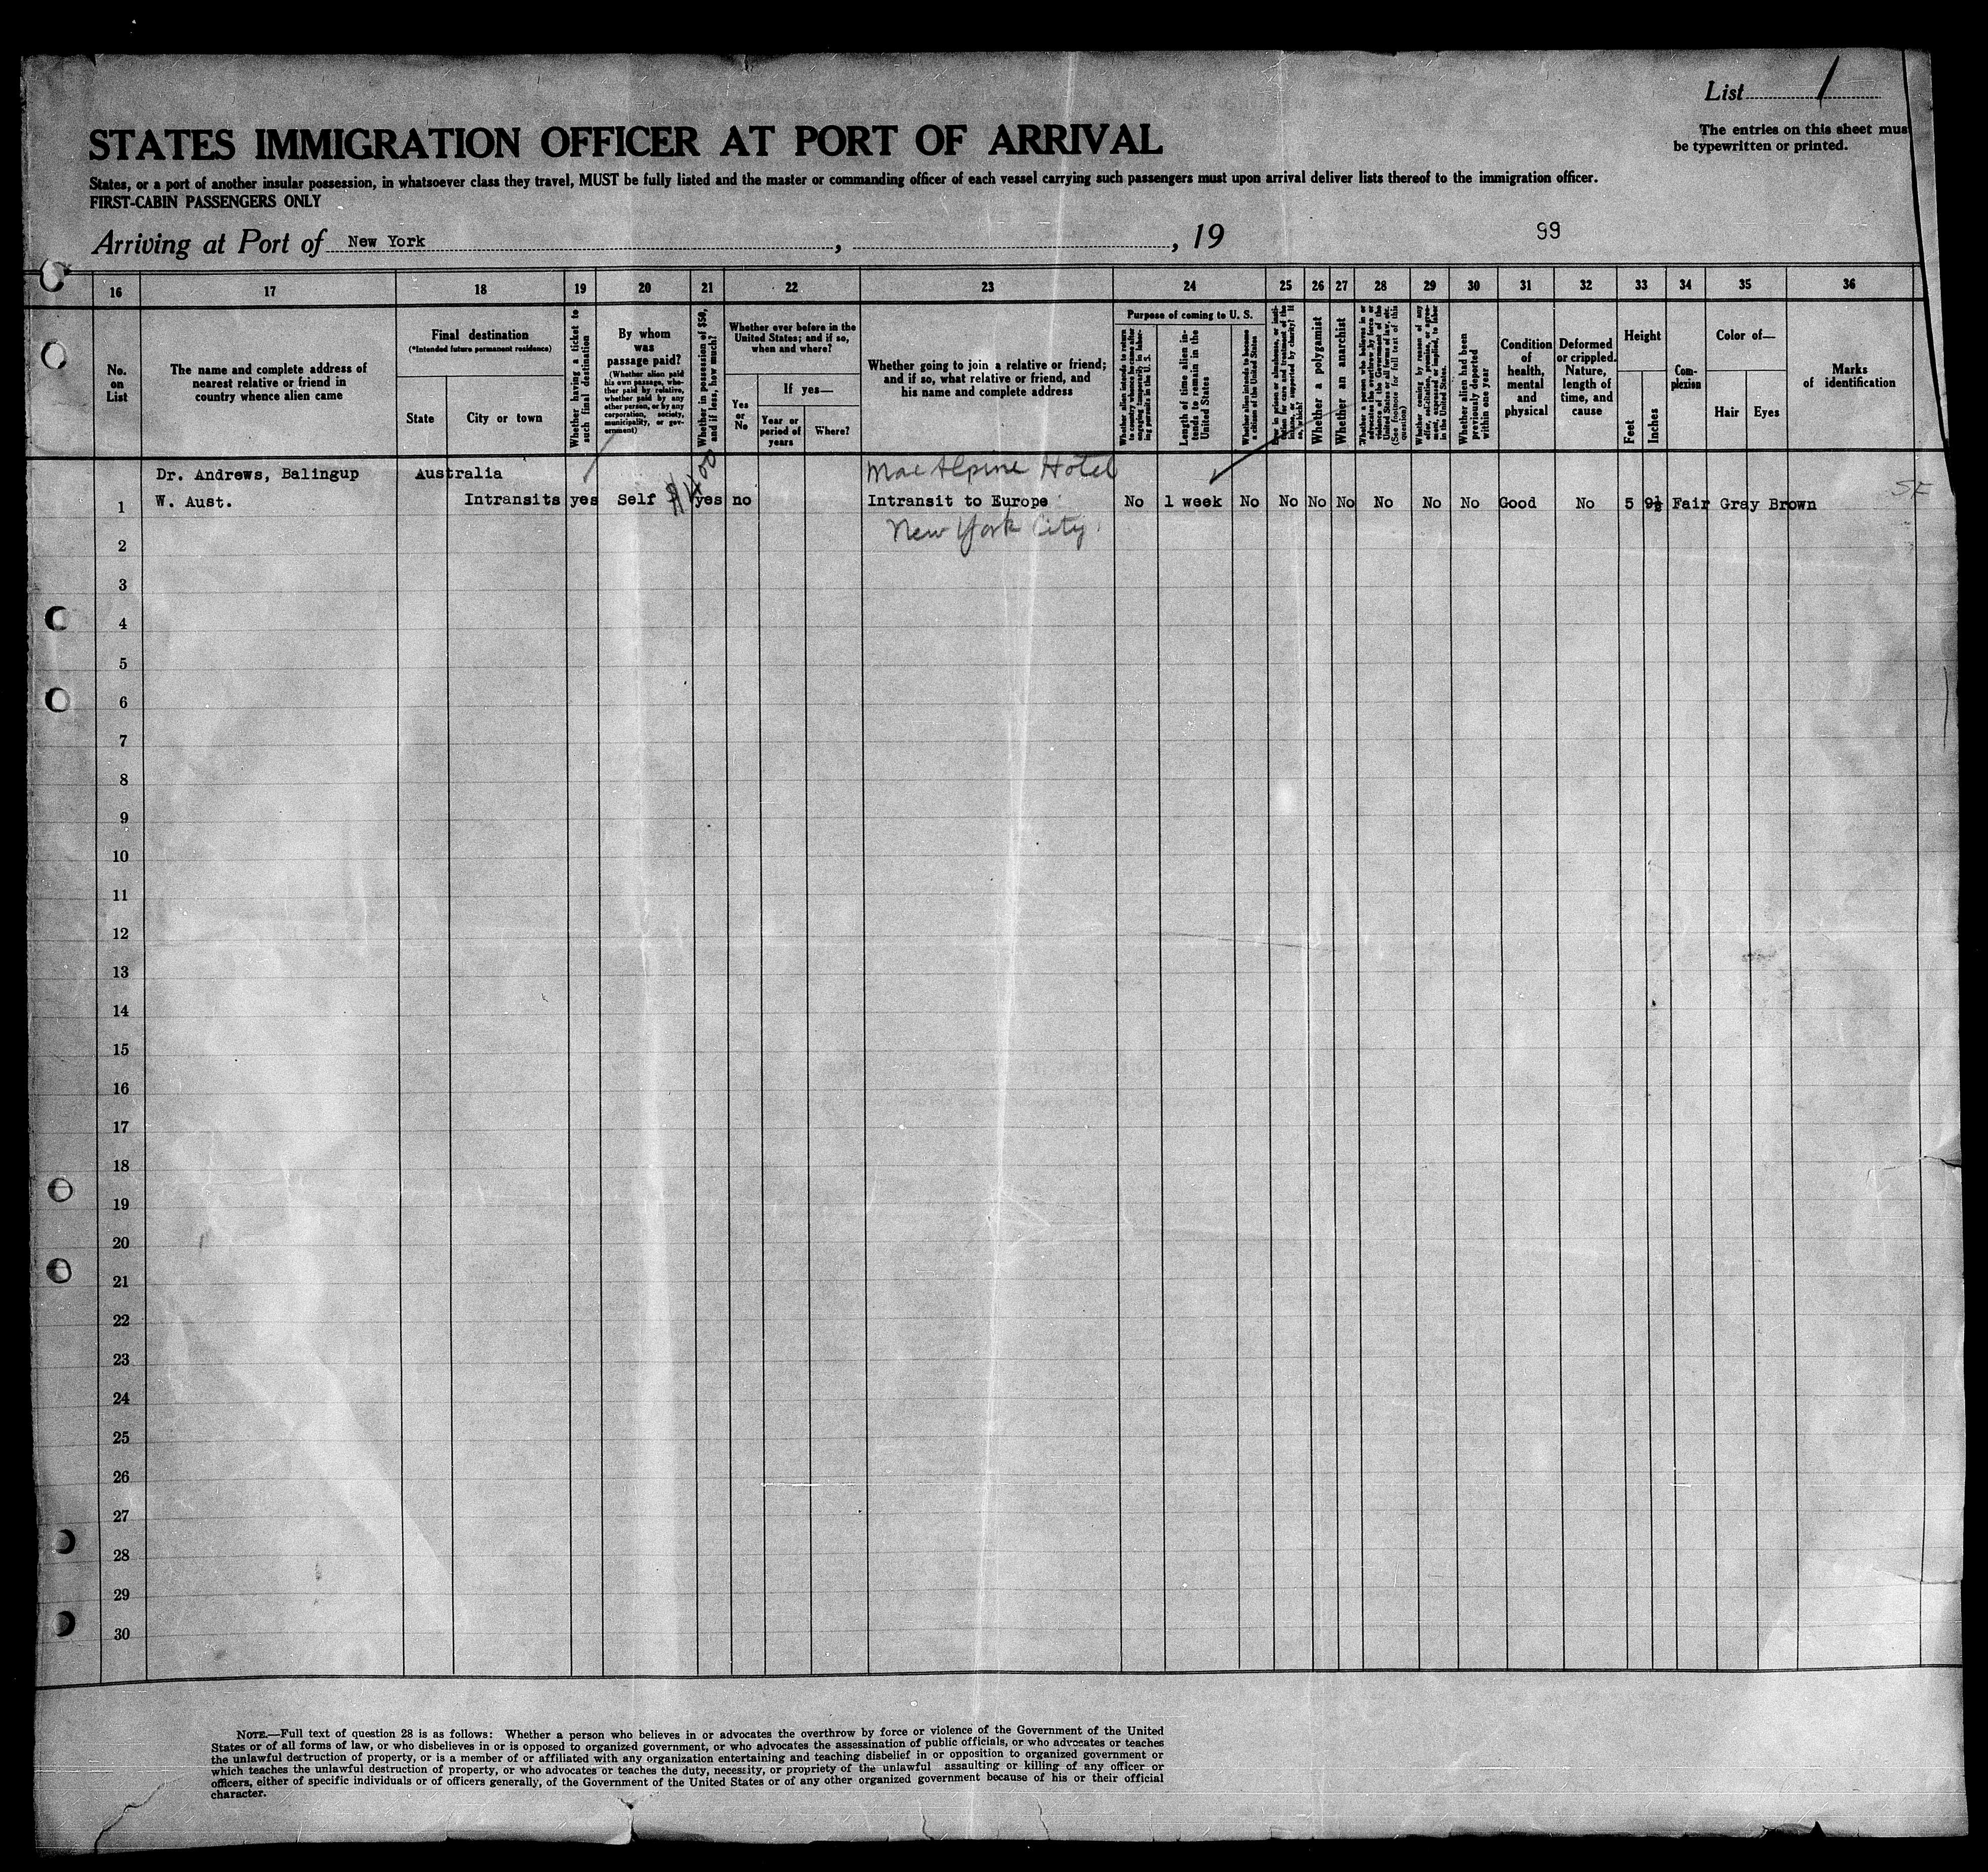 List 1
STATES IMMIGRATION OFFICER AT PORT OF ARRIVAL
The entries on this sheet mus
be typewritten or printed.
States, or a port of another insular possession, in whatsoever class they travel, MUST be fully listed and the master or commanding officer of each vessel carrying such passengers must upon arrival deliver lists thereof to the immigration officer.
FIRST-CABIN PASSENGERS ONLY
Arriving at Port of New York , , 19
99
16 17 18 19 20 21 22 23 24 25 26 27 28 29 30 31 32 33 34 35 36
No. on List
The name and complete address of
nearest relative or friend in
country whence alien came
Final destination
(*Intended future permanent residence)
State
City or town
Whether having a ticket to
such final destination
By whom
was
passage paid?
(Whether alien paid
his own passage, whe-
ther paid by relative,
whether paid by any
other person, or by any
corporation, society,
municipality, or gov-
ernment)
Whether in possession of $50,
and if less, how much?
Whether ever before in the
United States; and if so,
when and where?
Yes
or
No
If yes—
Year or
period of
years
Where?
Whether going to join a relative or friend;
and if so, what relative or friend, and
his name and complete address
Purpose of coming to U. S.
Whether alien intends to return
to country whence he came after
engaging temporarily in labor-
ing pursuits in the U. S.
Length of time alien in-
tends to remain in the
United States
Whether alien intends to become
a citizen of the United States
Whether a polygamist
Whether an anarchist
Whether alien had been
previously deported
within one year
Condition
of
health,
mental
and
physical
Deformed
or crippled.
Nature,
length of
time, and
cause
Height
Feet
Inches
Com-
plexion
Color of—
Hair
Eyes
Marks
of identification
Dr. Andrews, Balingup Australia MacAlpine Hotel
1 W. Aust. Intransits yes Self $1400 yes no Intransit to Europe No 1 week No No No No No No No Good No 5 9½ Fair Gray Brown SE
New York City
2
3
4
5
6
7
8
9
10
11
12
13
14
15
16
17
18
19
20
21
22
23
24
25
26
27
28
29
30
NOTE.—Full text of question 28 is as follows: Whether a person who believes in or advocates the overthrow by force or violence of the Government of the United
States or of all forms of law, or who disbelieves in or is opposed to organized government, or who advocates the assassination of public officials, or who advocates or teaches
the unlawful destruction of property, or is a member of or affiliated with any organization entertaining and teaching disbelief in or opposition to organized government or
which teaches the unlawful destruction of property, or who advocates or teaches the duty, necessity, or propriety of the unlawful assaulting or killing of any officer or
officers, either of specific individuals or of officers generally, of the Government of the United States or of any other organized government because of his or their official
character.